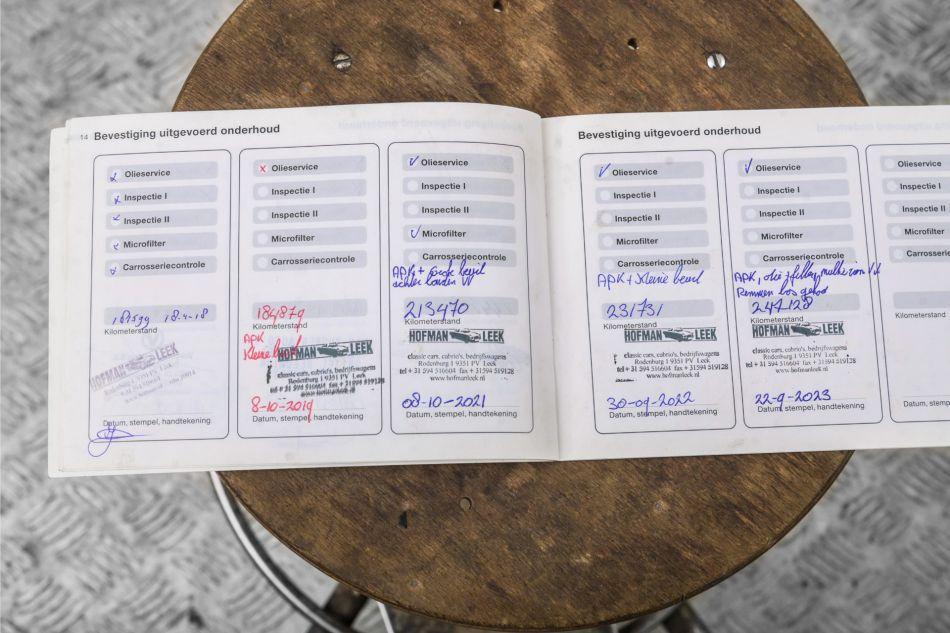 14 Bevestiging uitgevoerd onderhoud
Olieservice
Inspectie I
Inspectie II
Microfilter
Carrosseriecontrole
18-4-18
Kilometerstand
HOFMAN LEEK
Datum, stempel, handtekening
x Olieservice
Inspectie I
Inspectie II
Microfilter
Carrosseriecontrole
184879
Kilometerstand
APK
Kleine beurt
HOFMAN LEEK
classic cars, cabrio's, bedrijfswagens
Rodenburg 1 9351 PV Leek
tel + 31 594 516604 fax + 31 594 519128
www.hofmanleek.nl
8-10-2019
Datum, stempel, handtekening
Olieservice
Inspectie I
Inspectie II
Microfilter
Carrosseriecontrole
APK + grote beurt
achter banden
213470
Kilometerstand
HOFMAN LEEK
classic cars, cabrio's, bedrijfswagens
Rodenburg 1 9351 PV Leek
tel + 31 594 516604 fax + 31 594 519128
www.hofmanleek.nl
08-10-2021
Datum, stempel, handtekening
Bevestiging uitgevoerd onderhoud
Olieservice
Inspectie I
Inspectie II
Microfilter
Carrosseriecontrole
APK + Kleine beurt
231731
Kilometerstand
HOFMAN LEEK
classic cars, cabrio's, bedrijfswagens
Rodenburg 1 9351 PV Leek
tel + 31 594 516604 fax + 31 594 519128
www.hofmanleek.nl
30-09-2022
Datum, stempel, handtekening
Olieservice
Inspectie I
Inspectie II
Microfilter
Carrosseriecontrole
APK, olie + filter,
Remmen los gehaald
247128
Kilometerstand
HOFMAN LEEK
classic cars, cabrio's, bedrijfswagens
Rodenburg 1 9351 PV Leek
tel + 31 594 516604 fax + 31 594 519128
www.hofmanleek.nl
22-9-2023
Datum, stempel, handtekening
Olieservice
Inspectie I
Inspectie II
Microfilter
Carrosseriecontrole
Kilometerstand
Datum, stempel